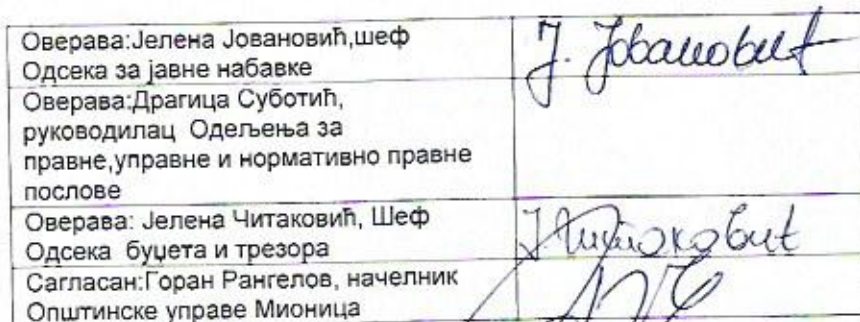 Оверава:Јелена Јовановић,шеф
Одсека за јавне набавке
Ј. Јовановић
Оверава:Драгица Суботић,
руководилац Одељења за
правне,управне и нормативно правне
послове
Оверава: Јелена Читаковић, Шеф
Одсека буџета и трезора
Ј Читаковић
Сагласан:Горан Рангелов, начелник
Општинске управе Мионица